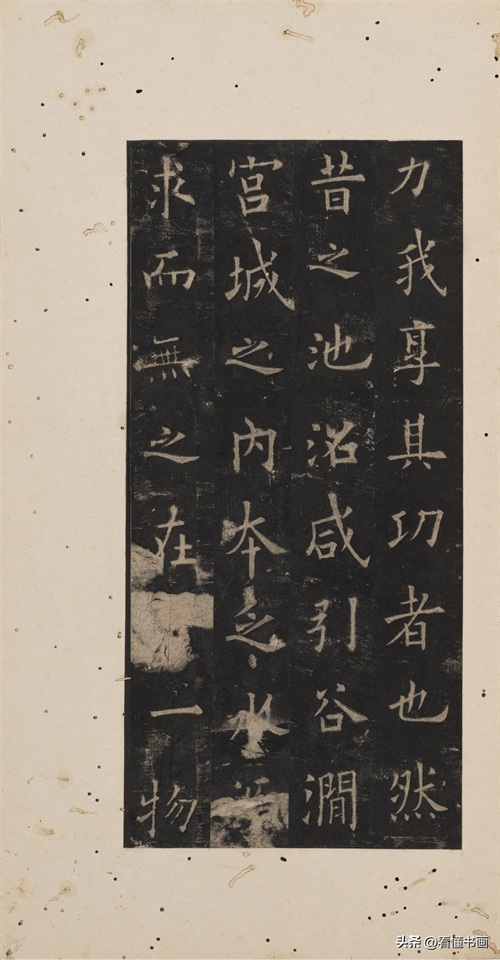 力我享其功者也然
昔之池沼咸引谷澗
宮城之內本乏水
求而無之在一物
头条 @看懂书画